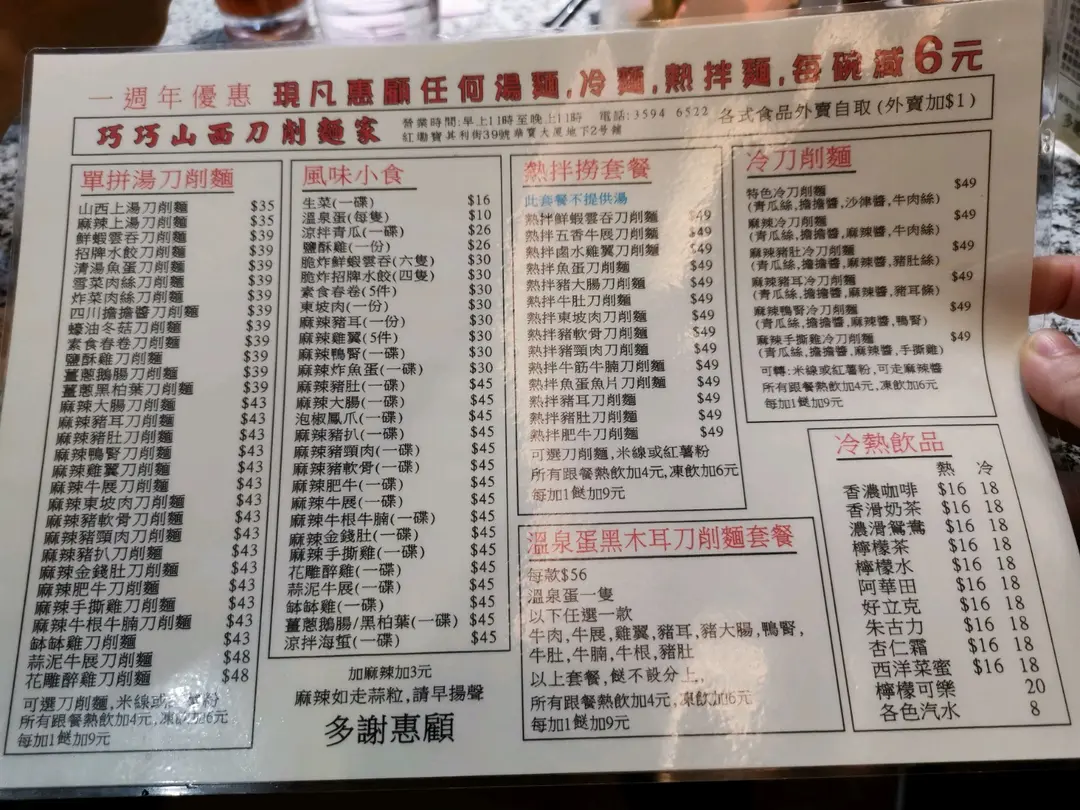 一週年優惠 現凡惠顧任何湯麵,冷麵,熱拌麵,每碗減6元
巧巧山西刀削麵家
營業時間:早上11時至晚上11時 電話:3594 6522
紅磡寶其利街39號華寶大厦地下2號舖
各式食品外賣自取(外賣加$1)
單拼湯刀削麵
山西上湯刀削麵 $35
麻辣上湯刀削麵 $35
鮮蝦雲吞刀削麵 $39
招牌水餃刀削麵 $39
清湯魚蛋刀削麵 $39
雪菜肉絲刀削麵 $39
炸菜肉絲刀削麵 $39
四川擔擔醬刀削麵 $39
蠔油冬菇刀削麵 $39
素食春卷刀削麵 $39
鹽酥雞刀削麵 $39
薑蔥鵝腸刀削麵 $39
薑蔥黑柏葉刀削麵 $39
麻辣大腸刀削麵 $43
麻辣豬耳刀削麵 $43
麻辣豬肚刀削麵 $43
麻辣鴨腎刀削麵 $43
麻辣雞翼刀削麵 $43
麻辣牛展刀削麵 $43
麻辣東坡肉刀削麵 $43
麻辣豬軟骨刀削麵 $43
麻辣豬頸肉刀削麵 $43
麻辣豬扒刀削麵 $43
麻辣金錢肚刀削麵 $43
麻辣肥牛刀削麵 $43
麻辣手撕雞刀削麵 $43
麻辣牛根牛腩刀削麵 $43
缽缽雞刀削麵 $43
蒜泥牛展刀削麵 $48
花雕醉雞刀削麵 $48
可選刀削麵,米線或 粉
所有跟餐熱飲加4元,凍飲加6元
每加1餸加9元
風味小食
生菜(一碟) $16
溫泉蛋(每隻) $10
涼拌青瓜(一碟) $26
鹽酥雞(一份) $26
脆炸鮮蝦雲吞(六隻) $30
脆炸招牌水餃(四隻) $30
素食春卷(5件) $30
東坡肉(一份) $30
麻辣豬耳(一份) $30
麻辣雞翼(5件) $30
麻辣鴨腎(一碟) $30
麻辣炸魚蛋(一碟) $30
麻辣豬肚(一碟) $45
麻辣大腸(一碟) $45
泡椒鳳爪(一碟) $45
麻辣豬扒(一碟) $45
麻辣豬頸肉(一碟) $45
麻辣豬軟骨(一碟) $45
麻辣肥牛(一碟) $45
麻辣牛展(一碟) $45
麻辣牛根牛腩(一碟) $45
麻辣金錢肚(一碟) $45
麻辣手撕雞(一碟) $45
花雕醉雞(一碟) $45
蒜泥牛展(一碟) $45
缽缽雞(一碟) $45
薑蔥鵝腸/黑柏葉(一碟) $45
涼拌海蜇(一碟) $45
加麻辣加3元
麻辣如走蒜粒,請早揚聲
多謝惠顧
熱拌撈套餐
此套餐不提供湯
熱拌鮮蝦雲吞刀削麵 $49
熱拌五香牛展刀削麵 $49
熱拌鹵水雞翼刀削麵 $49
熱拌魚蛋刀削麵 $49
熱拌豬大腸刀削麵 $49
熱拌牛肚刀削麵 $49
熱拌東坡肉刀削麵 $49
熱拌豬軟骨刀削麵 $49
熱拌豬頸肉刀削麵 $49
熱拌牛筋牛腩刀削麵 $49
熱拌魚蛋魚片刀削麵 $49
熱拌豬耳刀削麵 $49
熱拌豬肚刀削麵 $49
熱拌肥牛刀削麵 $49
可選刀削麵,米線或紅薯粉
所有跟餐熱飲加4元,凍飲加6元
每加1餸加9元
溫泉蛋黑木耳刀削麵套餐
每款$56
溫泉蛋一隻
以下任選一款
牛肉,牛展,雞翼,豬耳,豬大腸,鴨腎,
牛肚,牛腩,牛根,豬肚
以上套餐,餸不設分上,
所有跟餐熱飲加4元,凍飲加6元
每加1餸加9元
冷刀削麵
特色冷刀削麵 $49
(青瓜絲,擔擔醬,沙律醬,牛肉絲)
麻辣冷刀削麵 $49
(青瓜絲,擔擔醬,麻辣醬,牛肉絲)
麻辣豬肚冷刀削麵 $49
(青瓜絲,擔擔醬,麻辣醬,豬肚絲)
麻辣豬耳冷刀削麵 $49
(青瓜絲,擔擔醬,麻辣醬,豬耳絲)
麻辣鴨腎冷刀削麵 $49
(青瓜絲,擔擔醬,麻辣醬,鴨腎)
麻辣手撕雞冷刀削麵 $49
(青瓜絲,擔擔醬,麻辣醬,手撕雞)
可轉:米線或紅薯粉,可走麻辣醬
所有跟餐熱飲加4元,凍飲加6元
每加1餸加9元
冷熱飲品
熱 冷
香濃咖啡 $16 18
香滑奶茶 $16 18
濃滑鴛鴦 $16 18
檸檬茶 $16 18
檸檬水 $16 18
阿華田 $16 18
好立克 $16 18
朱古力 $16 18
杏仁霜 $16 18
西洋菜蜜 $16 18
檸檬可樂 20
各色汽水 8